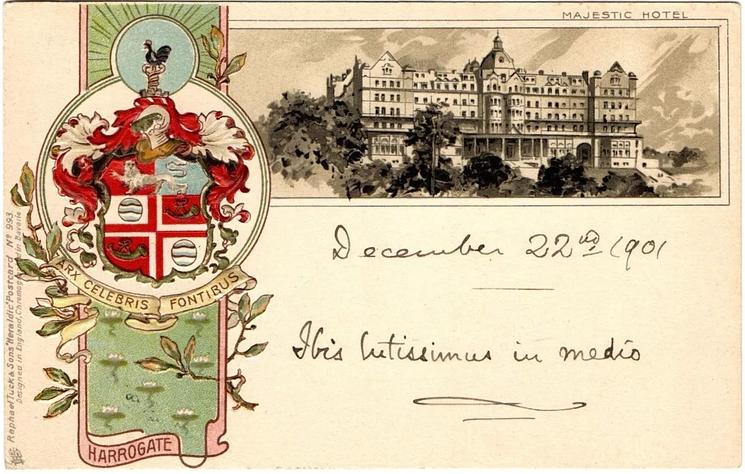 MAJESTIC HOTEL
ARX CELEBRIS FONTIBUS
HARROGATE
Raphael Tuck & Sons' "Heraldic" Postcard No 993.
Designed in England, Chromographed in Bavaria
December 22nd 1901
Ibis tutissimus in medio